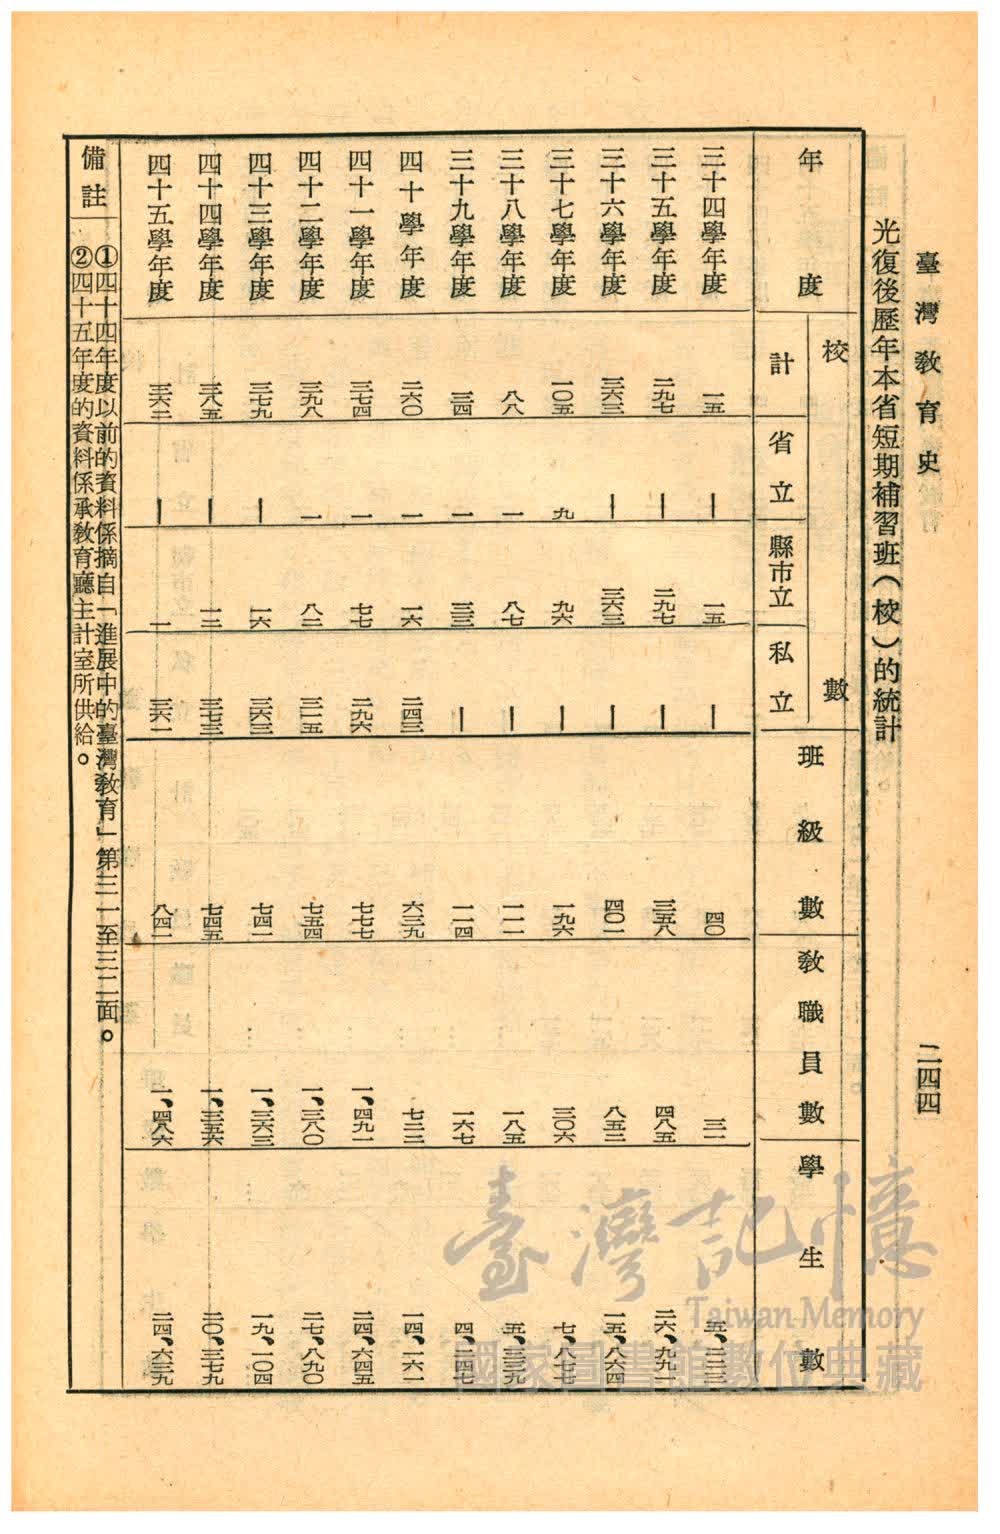 臺灣教育史
二四四
光復後歷年本省短期補習班(校)的統計
年度 校數 計 省立 縣市立 私立 班級數 教職員數 學生數
三十四學年度 一五 — 一五 — 四〇 三一
三十五學年度 二九七 — 二九七 — 三五八 四八五 二六、九九一
三十六學年度 三六三 — 三六三 — 四〇一 八五三 一五、八六四
三十七學年度 一〇五 九 九六 — 一九六 三〇六 七、八七七
三十八學年度 八八 一 八七 — 一八五 五、三三九
三十九學年度 三四 一 三三 — 一一四 一六七 四、二四七
四十學年度 二六〇 一 一六 二四三 六三九 七二二 一四、一六一
四十一學年度 三七四 一 七七 二九六 七七七 一、四九一 二四、六四五
四十二學年度 三九八 一 八二 三一五 七五四 一、三八〇 二七、八九〇
四十三學年度 三七九 — 一六 三六三 七四一 一、三六三 一九、一〇四
四十四學年度 三八五 — 一二 三七三 七四五 一、三五六 二〇、三七九
四十五學年度 三六二 — 一 三六一 八四一 一、四八六 二四、六三九
備註
①四十四年度以前的資料係摘自「進展中的臺灣教育」第三一至三二面。
②四十五年度的資料係承教育廳主計室所供給。
臺灣記憶
Taiwan Memory
國家圖書館數位典藏